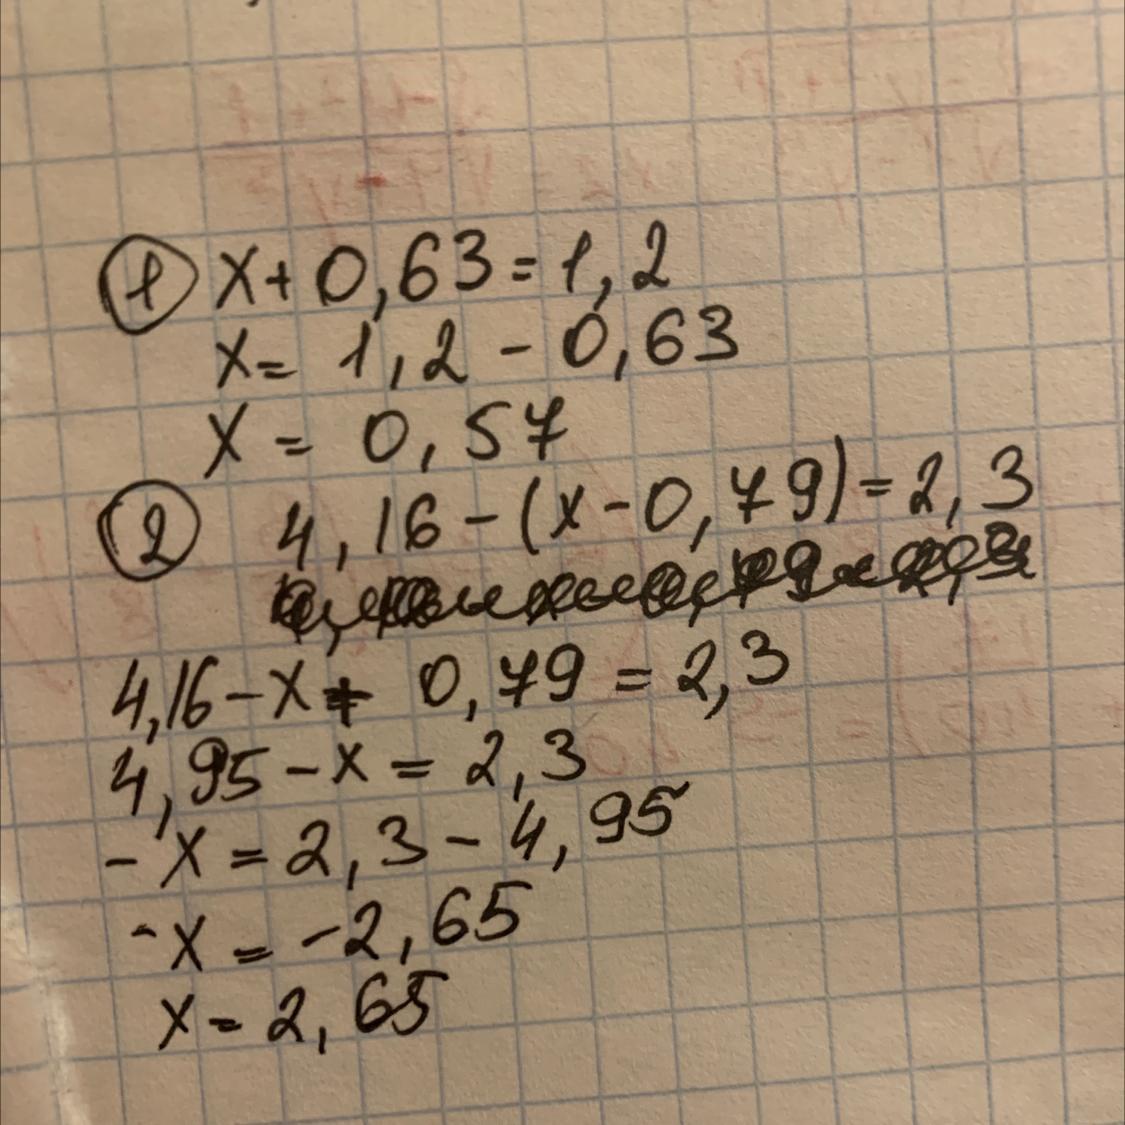 ① x + 0,63 = 1,2
x = 1,2 - 0,63
x = 0,57
② 4,16 - (x - 0,79) = 2,3
4,16 - x + 0,79 = 2,3
4,95 - x = 2,3
- x = 2,3 - 4,95
- x = -2,65
x = 2,65